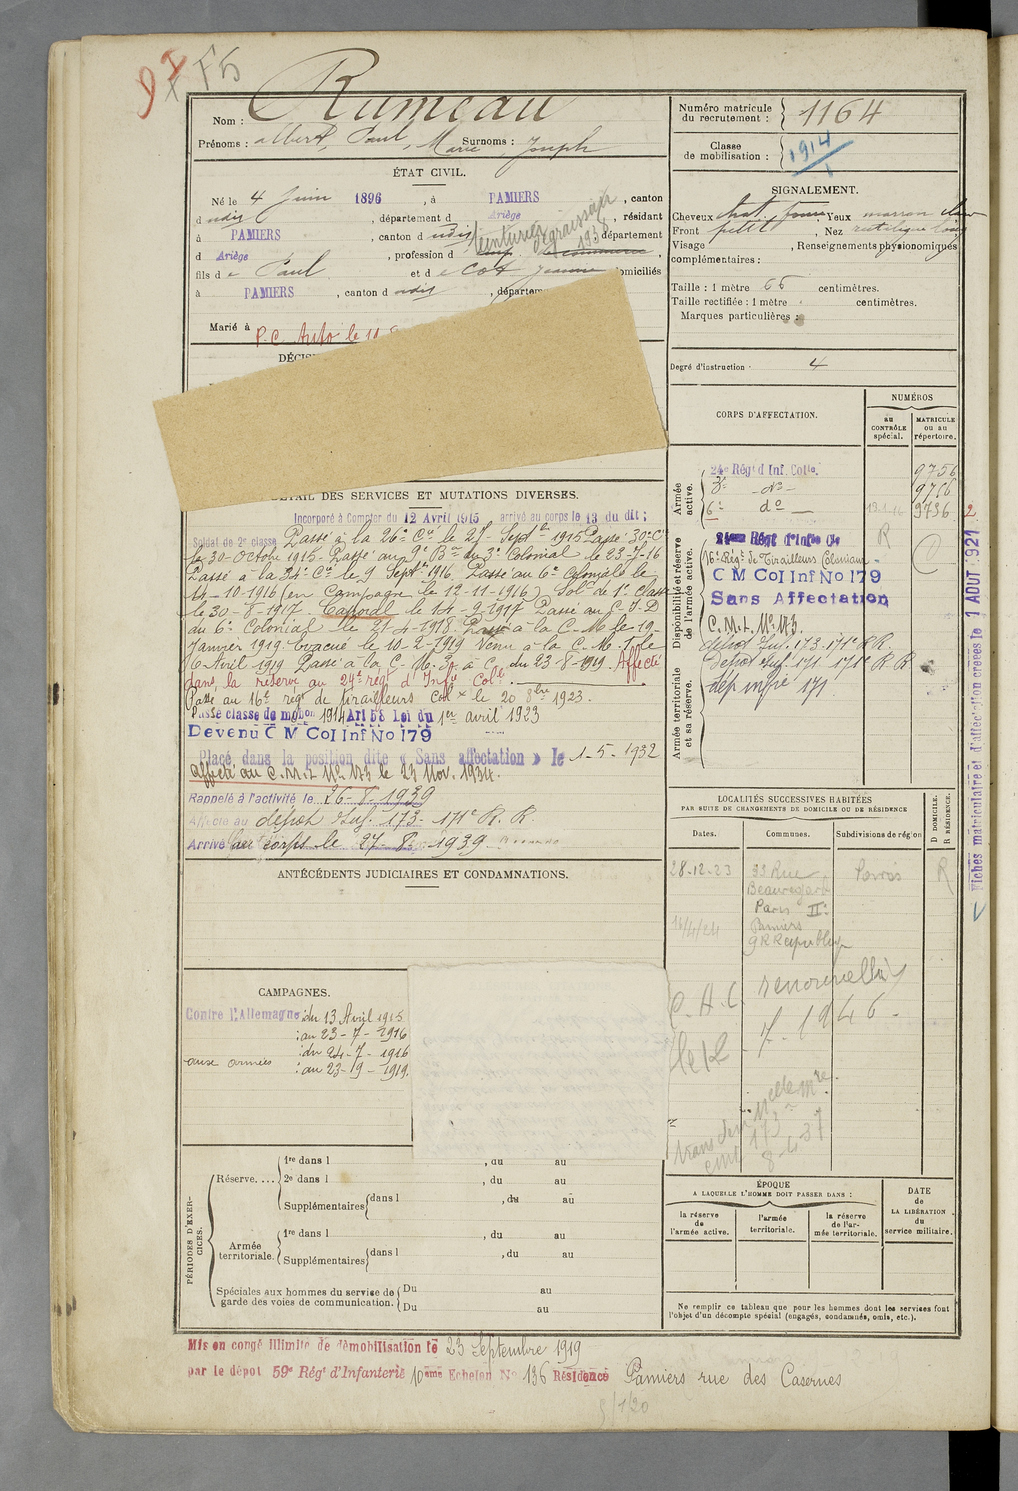 Nom : Rumeau
Prénoms : Albert, Paul, Marie Surnoms : Joseph
Numéro matricule du recrutement : 1164
Classe de mobilisation : 1914
ÉTAT CIVIL.
Né le 4 Juin 1896, à PAMIERS, canton
d udis, département d Ariège, résidant
à PAMIERS, canton d udis, département
d Ariège, profession d teinturier dégraisseur 1938
fils de Paul et de Cot Jeanne domiciliés
à PAMIERS, canton d udis, départem
Marié à
P.C. Auto le
DÉCIS
SIGNALEMENT.
Cheveux chat. Yeux marron clair
Front petit, Nez rectiligne long
Visage , Renseignements physionomiques
complémentaires :
Taille : 1 mètre 66 centimètres.
Taille rectifiée : 1 mètre centimètres.
Marques particulières :
Degré d'instruction : 4
CORPS D'AFFECTATION.
NUMÉROS
au CONTRÔLE spécial.
MATRICULE ou au répertoire.
Armée active.
24e Régt d'Inf. Colle. 9756
3e do 9716
6e do 9736
Disponibilité et réserve de l'armée active.
16e Rég. de Tirailleurs Coloniaux R
C M Col Inf No 179
Sans Affectation
C.M.I. No 173
depot Inf. 173. 171e R R.
Depot Inf 171 171e R R
Dep infie 171
Armée territoriale et sa réserve.
Fiches matriculaire et d'affectation créées le 1 AOUT 1921
DÉTAIL DES SERVICES ET MUTATIONS DIVERSES.
Incorporé à Compter du 12 Avril 1915 arrivé au corps le 13 du dit ;
Soldat de 2e classe Passé à la 26e Cie le 21 Septbre 1915 Passé 30e Cie
le 30 Octobre 1915. Passé au 9e Bon du 3e Colonial le 23-7-16
Passé à la 34e Cie le 9 Septbre 1916. Passé au 6e Colonial le
14-10-1916 (en Campagne le 12-11-1916) Solt de 1e Classe
le 30-8-1917. Caporal le 14-9-1917 Passé au C.I.D
du 6e Colonial le 21-4-1918. Passé à la C.M. le 19-
Janvier 1919. Evacué le 10-2-1919 Venu à la C.M. 1 le
16 Avril 1919 Passé à la C.M. 3 à C. du 23-8-1919. Affecté
dans la réserve au 24e régt d'Infie Colle.
Passé au 16e régt de tirailleurs colx le 20 8bre 1923.
Passé classe de mobon 1914 Art 58 Loi du 1er avril 1923
Devenu C M Col Inf No 179
Placé dans la position dite « Sans affectation » le 1-5-1932
Affecté au C.M.I. No 173 le 23 Nov. 1934.
Rappelé à l'activité le 26-8-1939
Affecté au dépôt Inf. 173- 171e R. R.
Arrivé au corps le 27-8-1939
ANTÉCÉDENTS JUDICIAIRES ET CONDAMNATIONS.
LOCALITÉS SUCCESSIVES HABITÉES
PAR SUITE DE CHANGEMENTS DE DOMICILE OU DE RÉSIDENCE
Dates. Communes. Subdivisions de région D DOMICILE. R RÉSIDENCE.
28-12-23 33 Rue Beauregard Paris II Paris R
14/4/24 Pamiers 9 R République
renouvellée
le 12-7-1946
CAMPAGNES.
Contre l'Allemagne : du 13 Avril 1915
: au 23-7-1916
aux armées : du 24-7-1916
: au 23-19-1919.
PÉRIODES D'EXERCICES.
Réserve.... 1re dans l , du au
2e dans l , du au
Supplémentaires dans l , du au
Armée territoriale. 1re dans l , du au
Supplémentaires dans l , du au
Spéciales aux hommes du service de garde des voies de communication. Du au
Du au
ÉPOQUE
A LAQUELLE L'HOMME DOIT PASSER DANS :
la réserve de l'armée active.
l'armée territoriale.
la réserve de l'armée territoriale.
DATE de LA LIBÉRATION du service militaire.
Ne remplir ce tableau que pour les hommes dont les services font
l'objet d'un décompte spécial (engagés, condamnés, omis, etc.).
Mis en congé illimité de démobilisation le 23 Septembre 1919
par le dépôt 59e Régt d'Infanterie 10ème Echelon No 136 Résidence Pamiers rue des Casernes
5/1/20